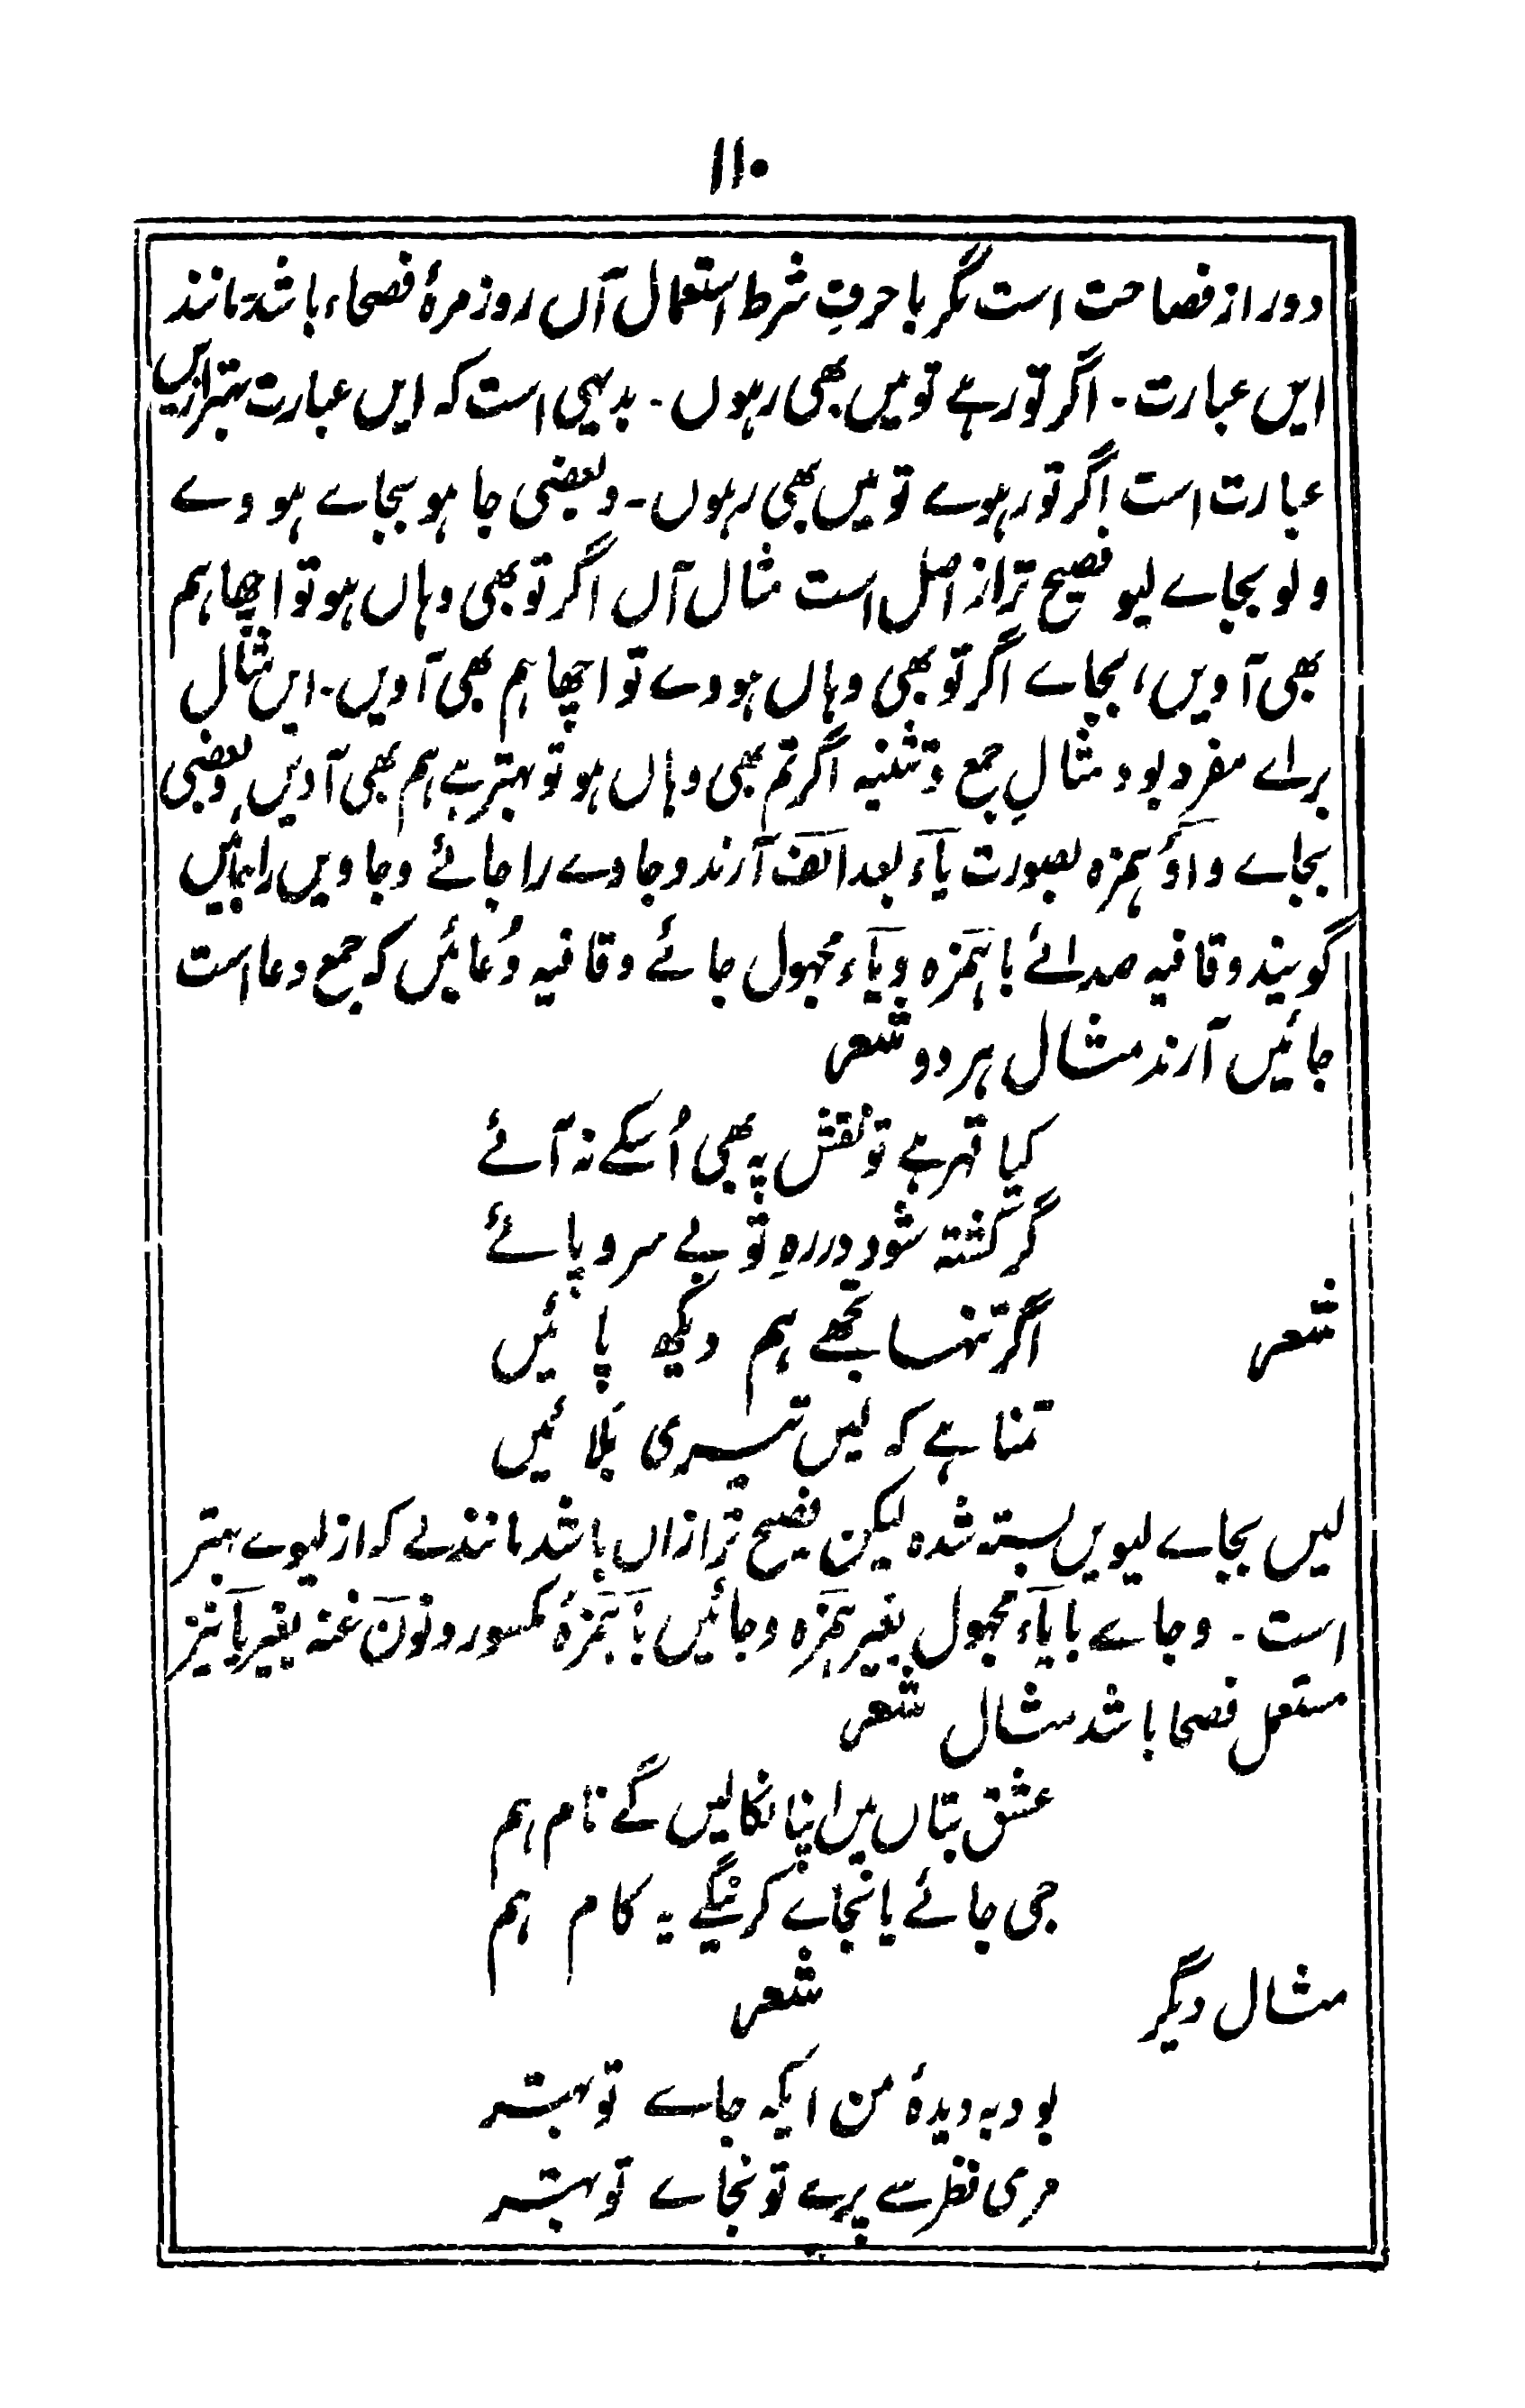 ۱۱۰
دور از فصاحت است مگر با حرفِ شرط استعمال آں روزمرۂ فصحاء باشد مانند
ایں عبارت۔ اگر تو رہے تو میں بھی رہوں۔ بدیہی است کہ ایں عبارت بہتر ازیں
عبارت است اگر تو رہوے تو میں بھی رہوں۔ و بعضی جا ہو بجاے ہووے
و لو بجاے لیو فصیح تر از اصل است مثال آں اگر تو بھی وہاں ہو تو اچھا ہم
بھی آویں، بجاے اگر تو بھی وہاں ہووے تو اچھا ہم بھی آویں۔ ایں مثال
براے مفرد بود مثالِ جمع و تثنیہ اگر تم بھی وہاں ہو تو بہتر ہے ہم بھی آویں و بعضی
بجاے واوٗ ہمزہ بصورت یاٗ بعد الف آرند و جاوے را جائے و جاویں را جائیں
گویند و قافیہ صدائے با ہمزہ و یاٗء مجہول جائے و قافیہ دُعائیں کہ جمع دعا است
جائیں آرند مثال ہر دو شعر
کیا قہر ہے تو نقش پہ بھی اُسکے نہ آئے
گر کشتہ شود در رہِ تو بے سر و پائے
شعر
اگر تنہا تجھے ہم دیکھ پائیں
تمنا ہے کہ لیں تیری بَلائیں
لیں بجاے لیویں بستہ شدہ لیکن فصیح تر ازاں باشد مانند لے کہ از لیوے بہتر
است۔ و جاے با یاٗء مجہول بغیر ہمزہ و جائیں با ہمزۂ مکسور و نون غنہ بغیر یا نیز
مستعمل فصحا باشد مثال شعر
عشق بتاں میں اپنا نکالیں گے نام ہم
جی جائے یا نجاے کرینگے یہ کام ہم
مثال دیگر
شعر
بود بہ دیدۂ من ایکہ جاے تو بہتر
مری نظر سے پرے تو نجاے تو بہتر